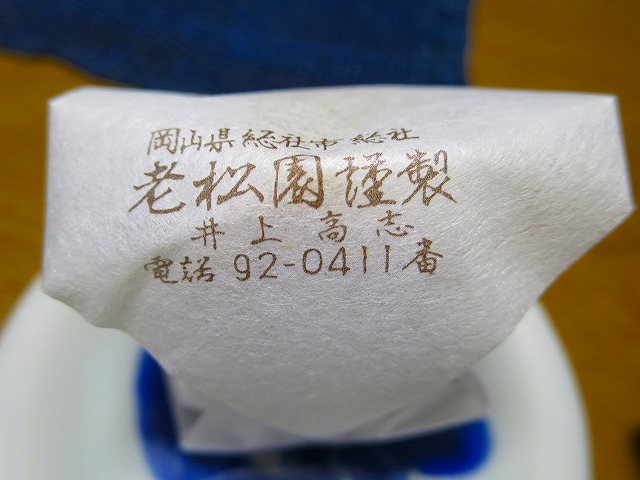 岡山県総社市総社
老松園謹製
井上高志
電話 92-0411番